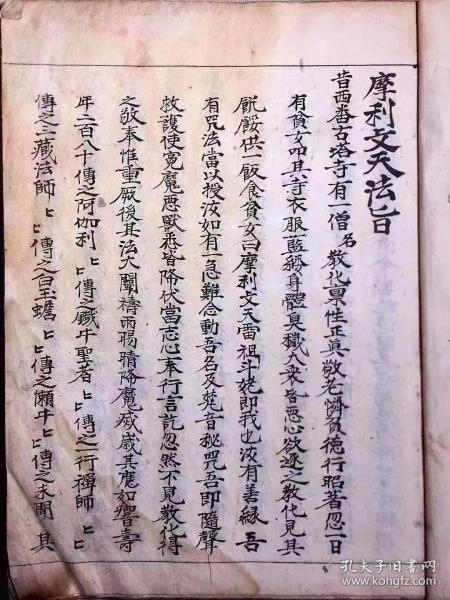 摩利攴天法旨
昔西番古塔寺有一僧名教化禀性正真敬老憐貧德行昭著忽一日
有貧女叩其寺衣服藍縷身體臭穢大衆皆惡心欲逐之教化見其
飢餒供一飯食貧女曰摩利攴天雷祖斗姥即我也汝有善緣吾
有咒法當以授汝如有急難念動吾名及梵音秘咒吾即隨聲
救護使冤魔惡獸悉皆降伏當志心奉行言訖忽然不見教化得
之敬奉惟重厥後其法大闡禱雨暘晴降魔歲歲其應如響壽
年二百八十傳之阿伽利匕匕傳之鐵牛聖者匕匕傳之一行禪師匕匕
傳之三藏法師匕匕傳之白玉蟾匕匕傳之懶牛匕匕傳之未聞其
孔夫子旧书网
www.kongfz.com